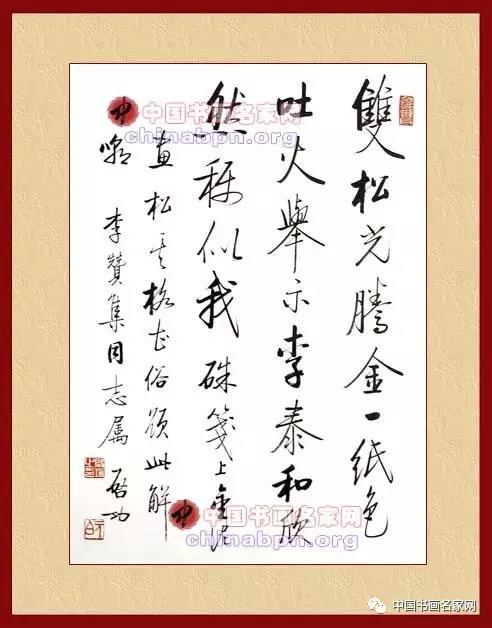 雙松光騰金一紙色
吐火舉示李泰和欣
然稱似我 硃箋上金泥
畫松其格甚俗此解
嘲 李贊集同志属 启功
中国书画名家网
chinabpn.org
中国书画名家网
chinabpn.org
中国书画名家网